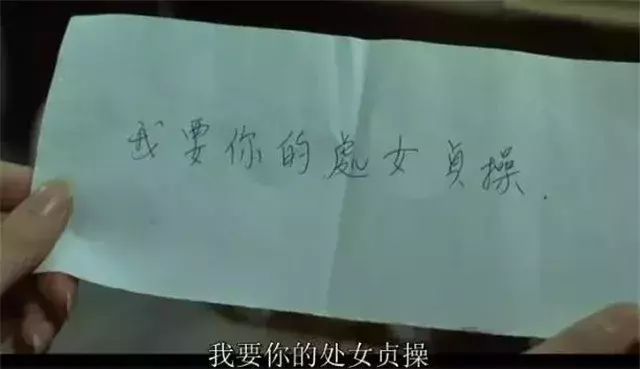 我要你的處女貞操.
我要你的处女贞操